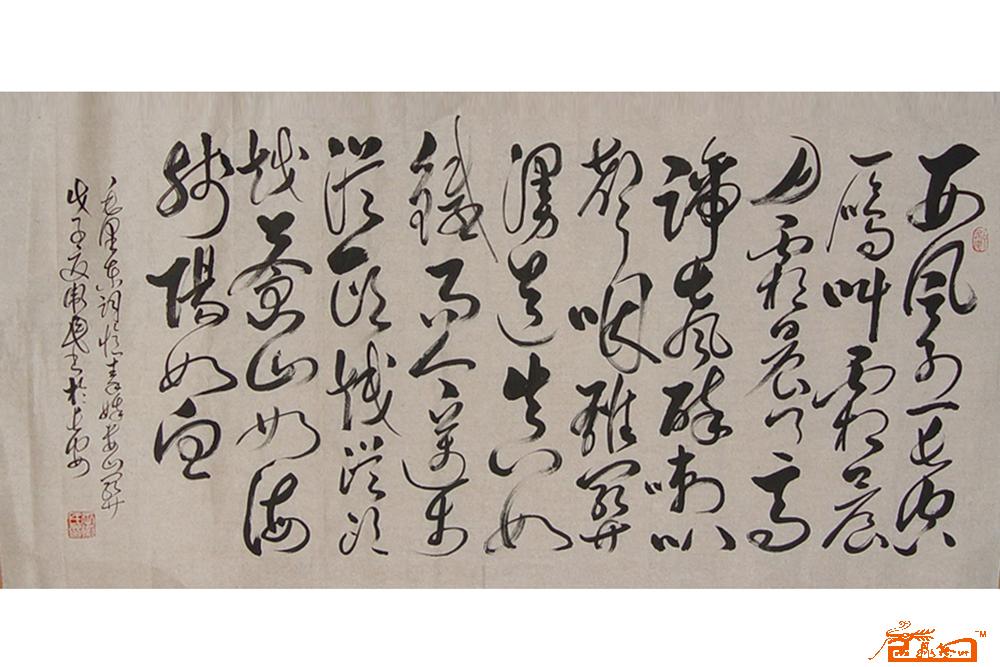 西風烈長空
雁叫霜晨
月霜晨月馬
蹄聲碎喇叭
聲咽雄關
漫道真如
鐵而今邁步
從頭越從頭
越蒼山如海
殘陽如血
毛澤東詞憶秦娥婁山關
戊子夏書於長安